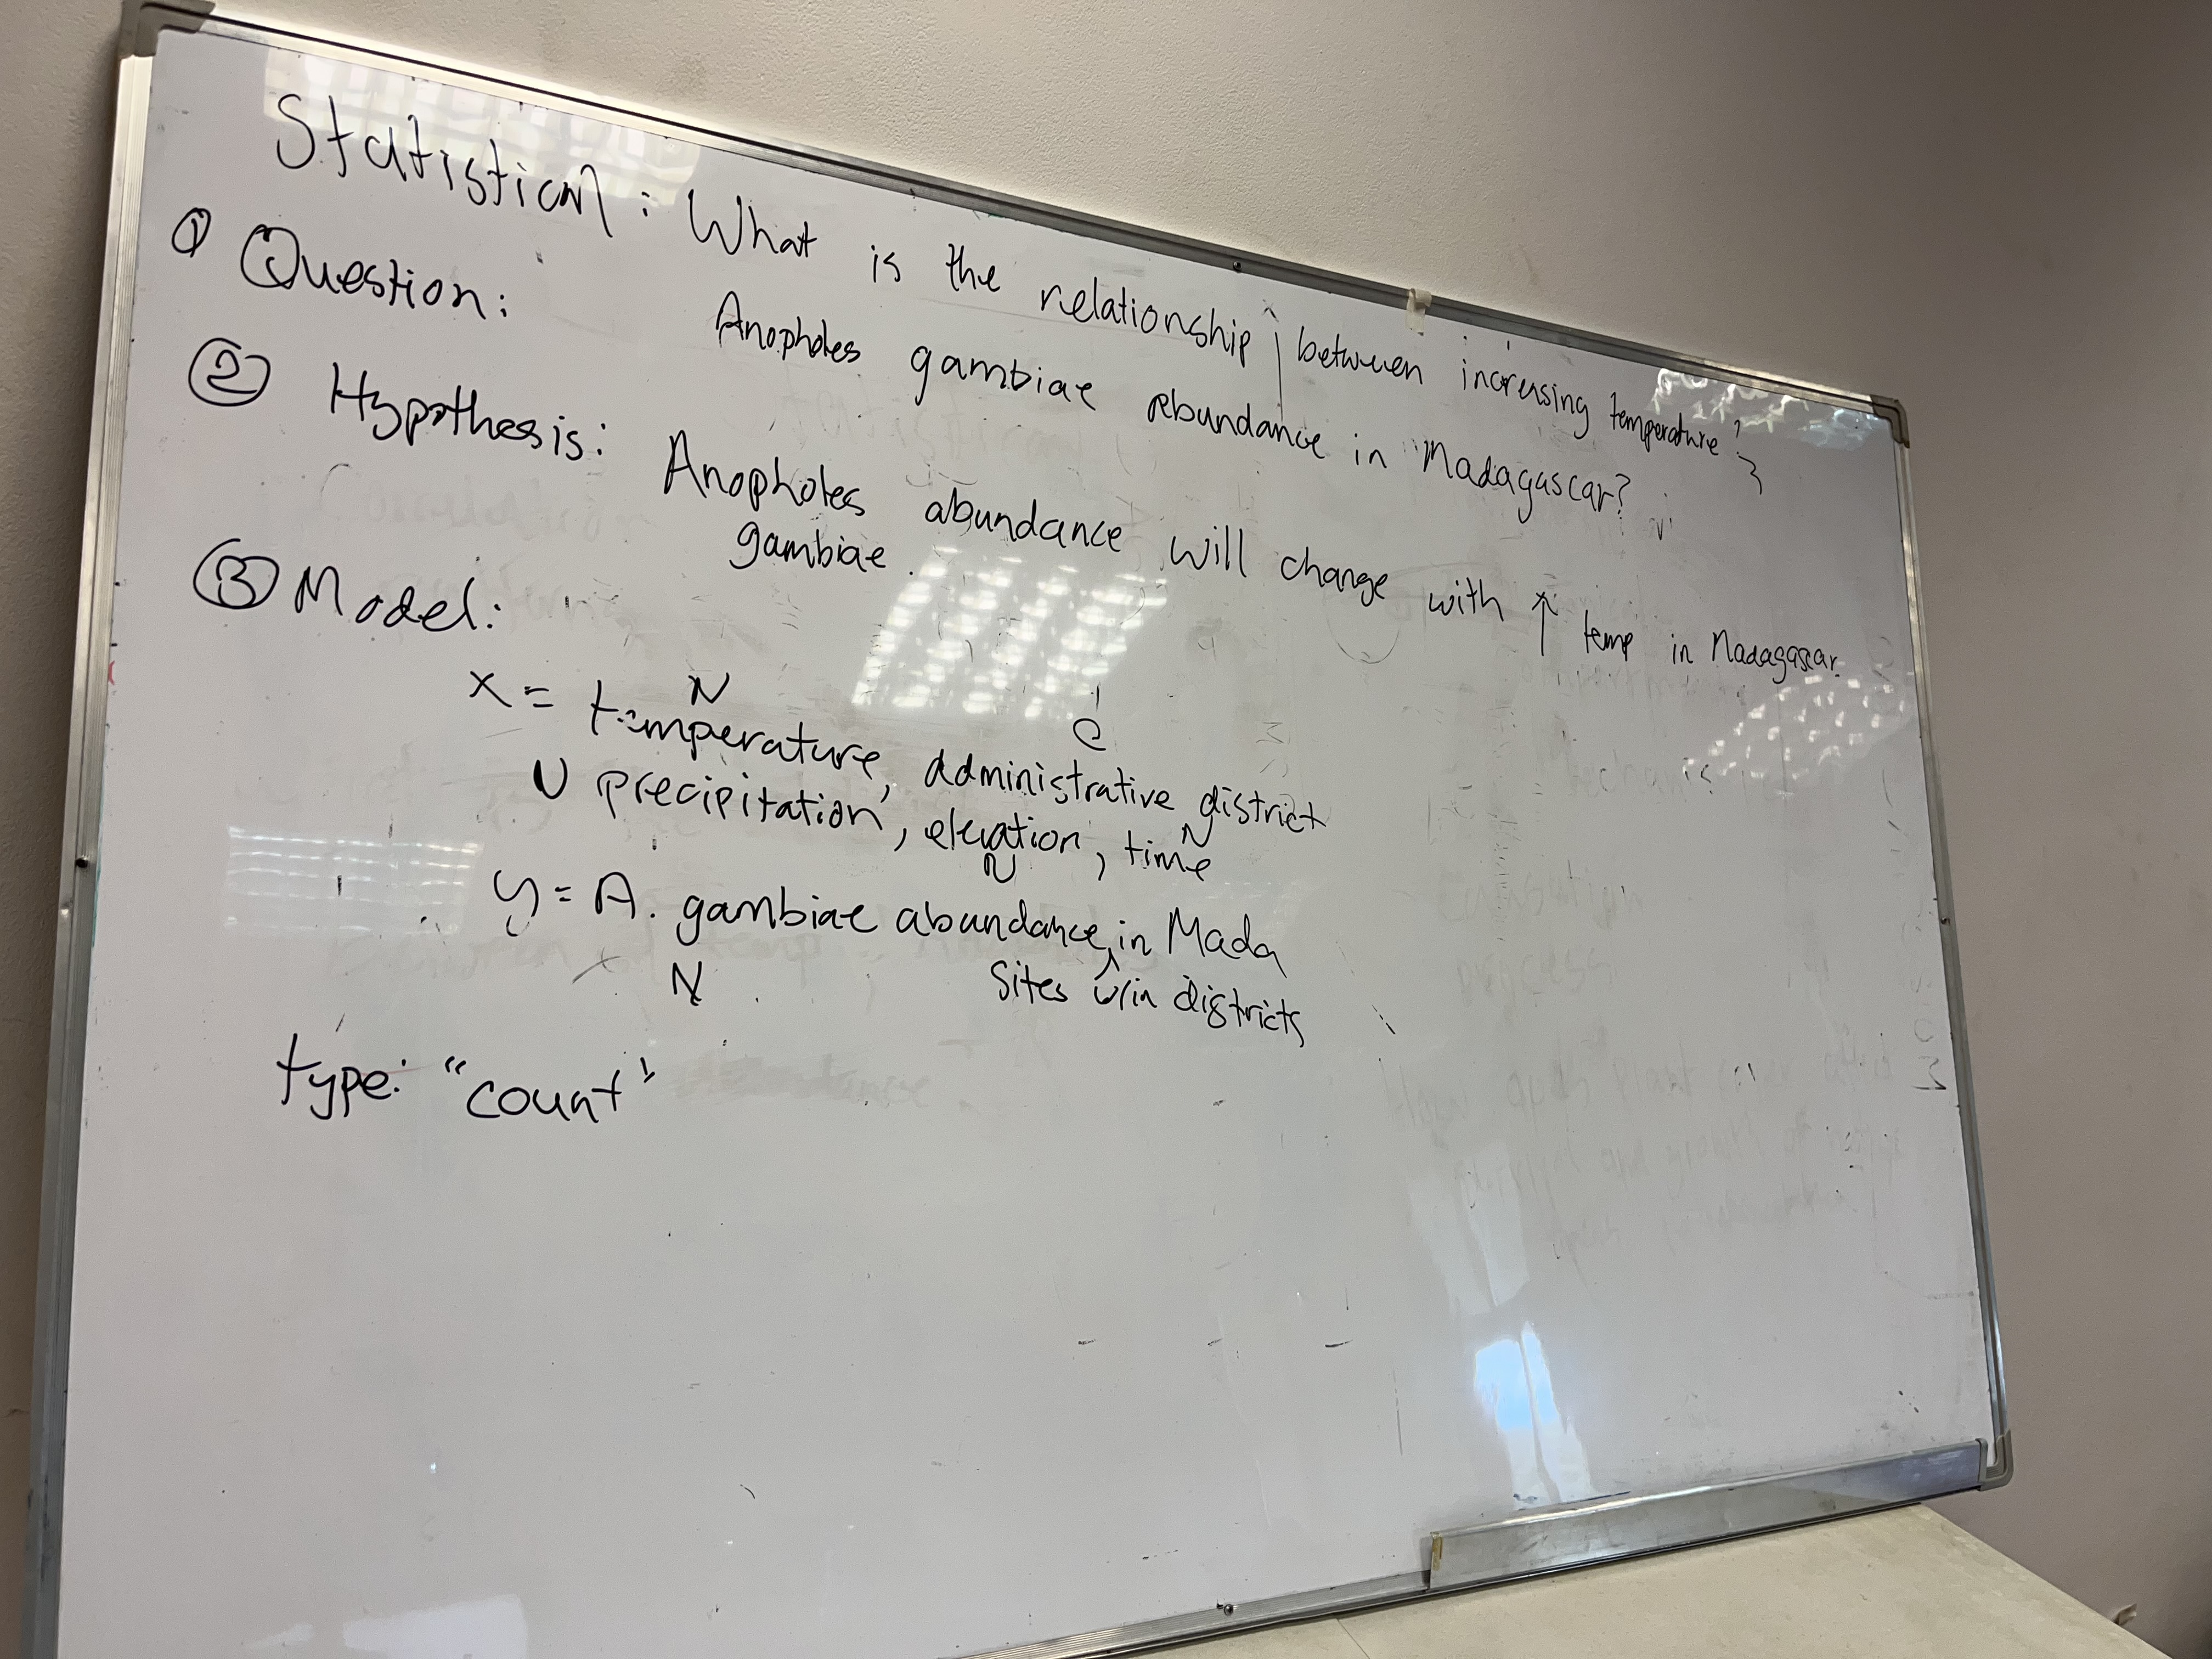 Statistical:
① Question: What is the relationship between increasing temperature &
Anopholes gambiae abundance in Madagascar?
② Hypothesis: Anopholes abundance will change with ↑ temp in Madagascar
gambiae.
③ Model:
N C
x = temperature, administrative district
N precipitation, elevation, time
N N
y = A. gambiae abundance, in Mada
N Sites w/in districts
type: "count"